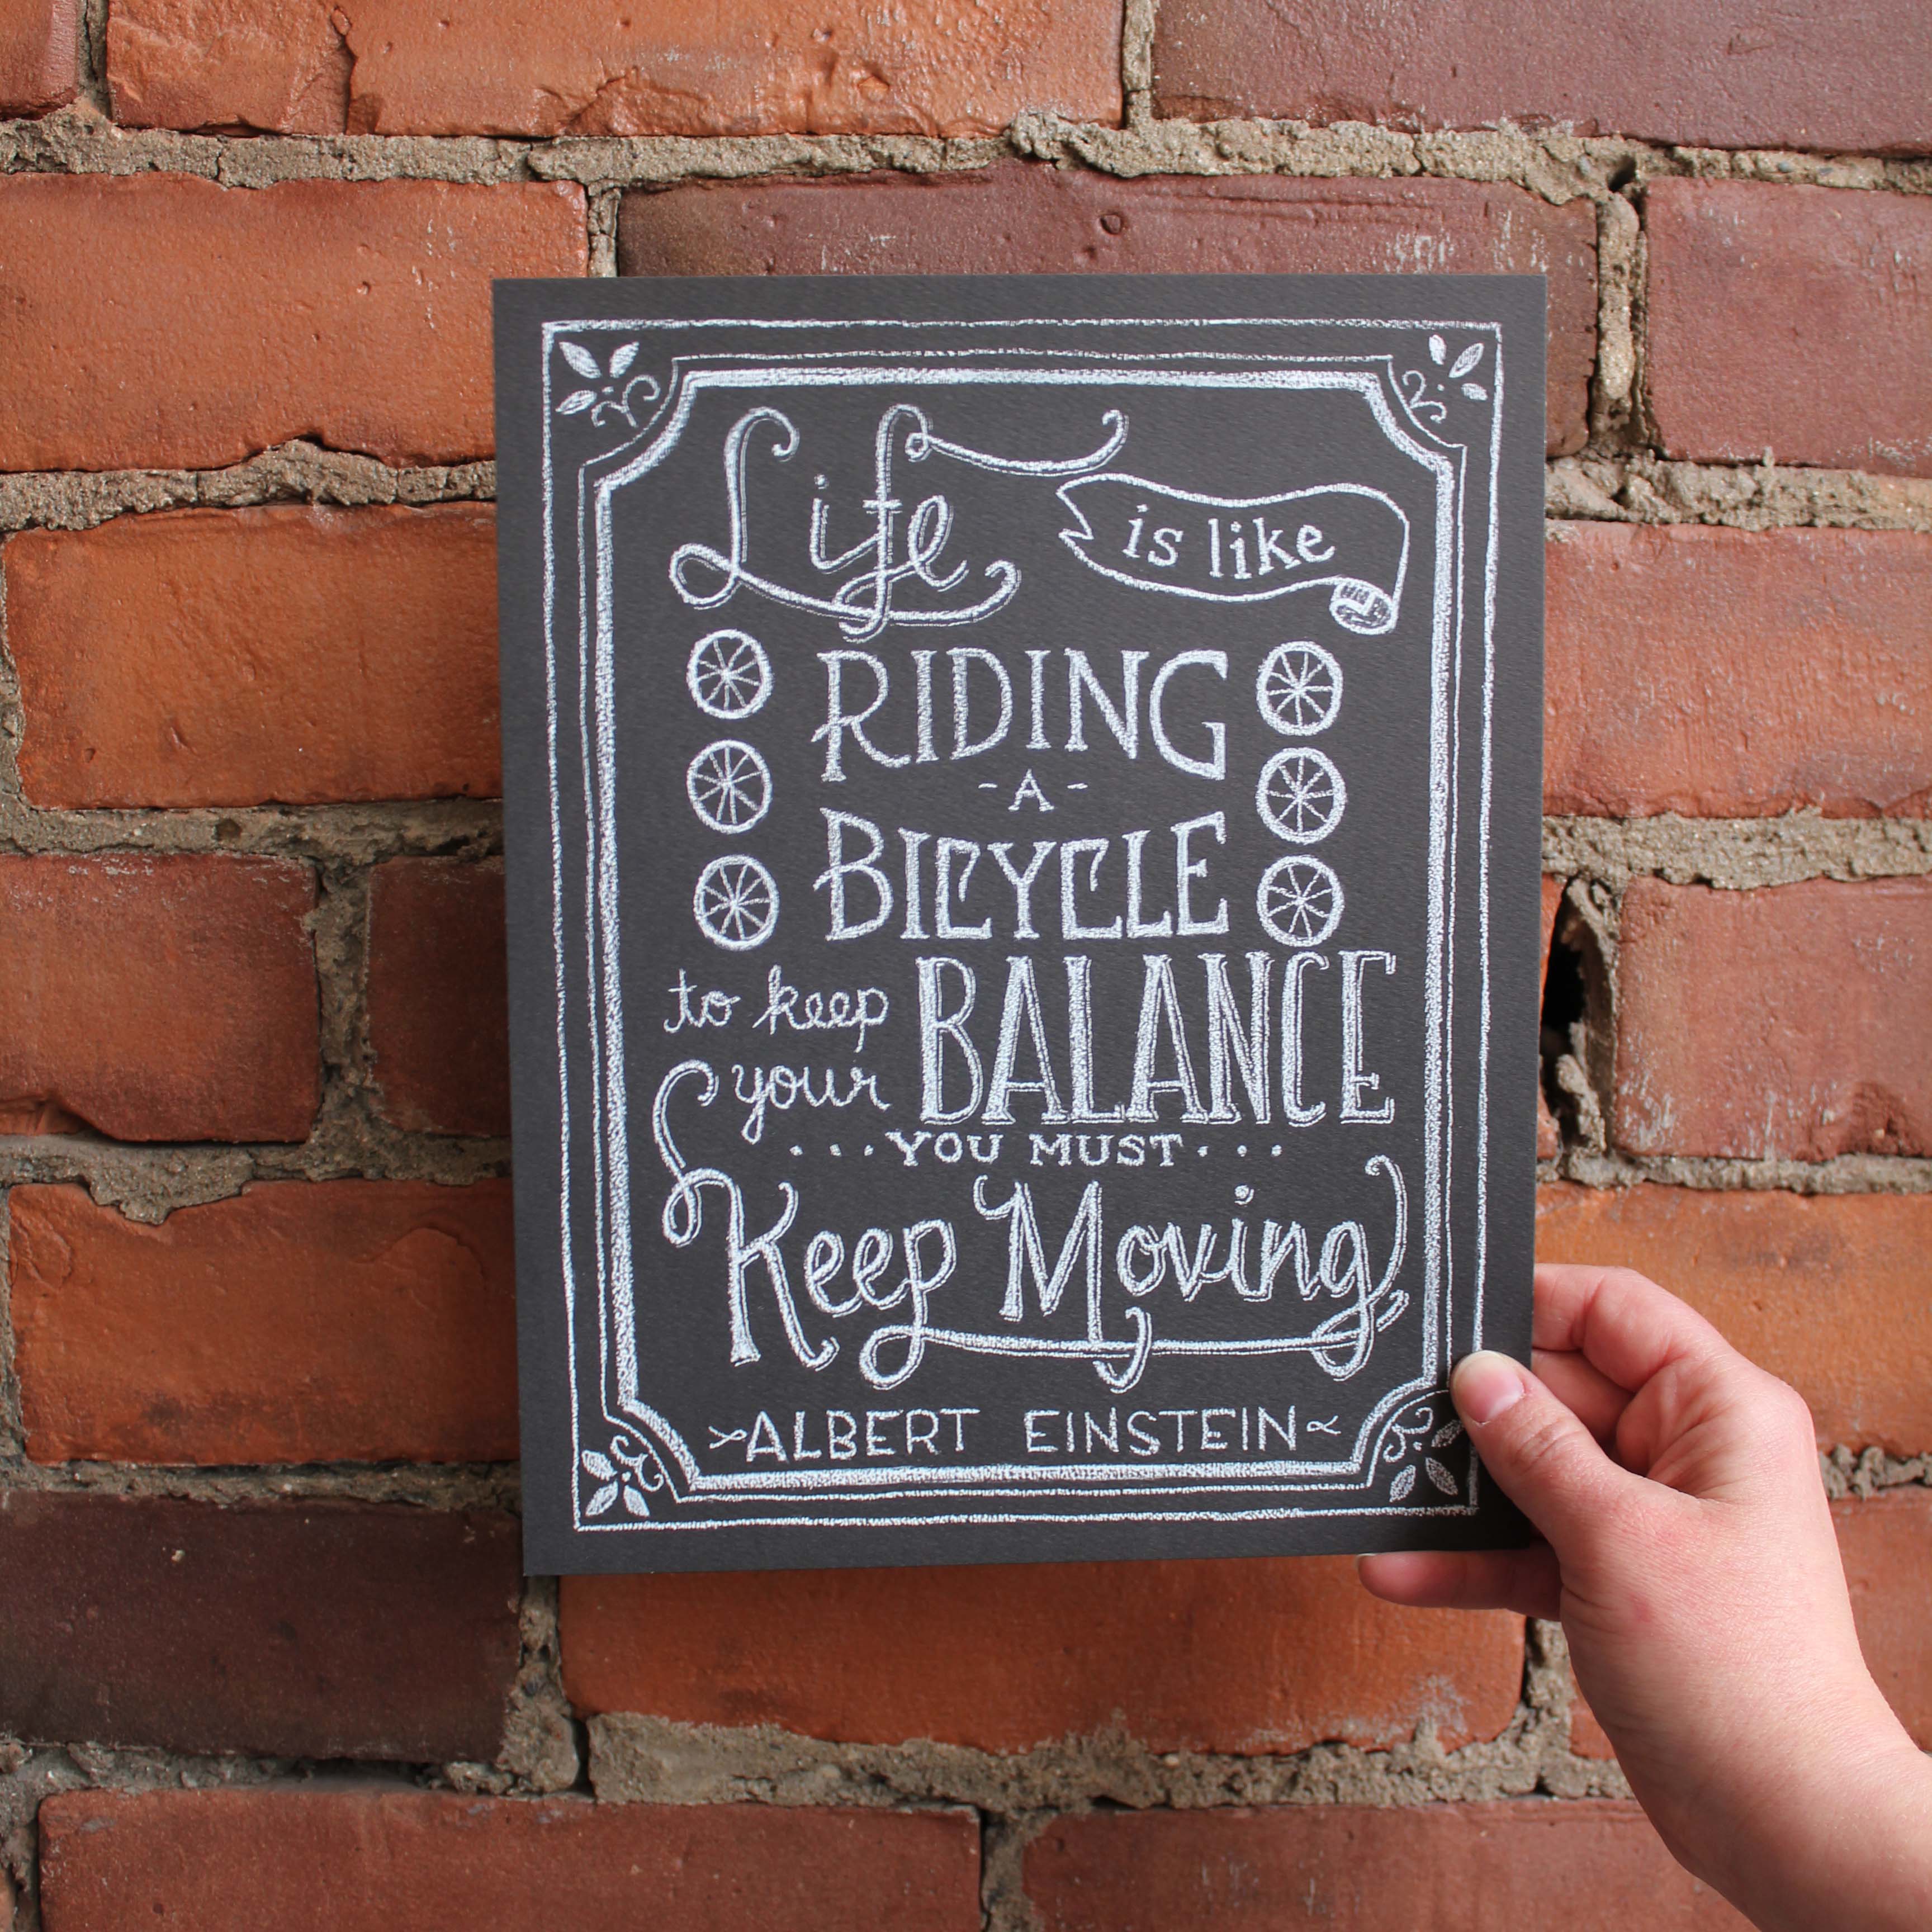 Life is like
RIDING
-A-
BICYCLE
to keep
your BALANCE
...YOU MUST...
Keep Moving
~ALBERT EINSTEIN~